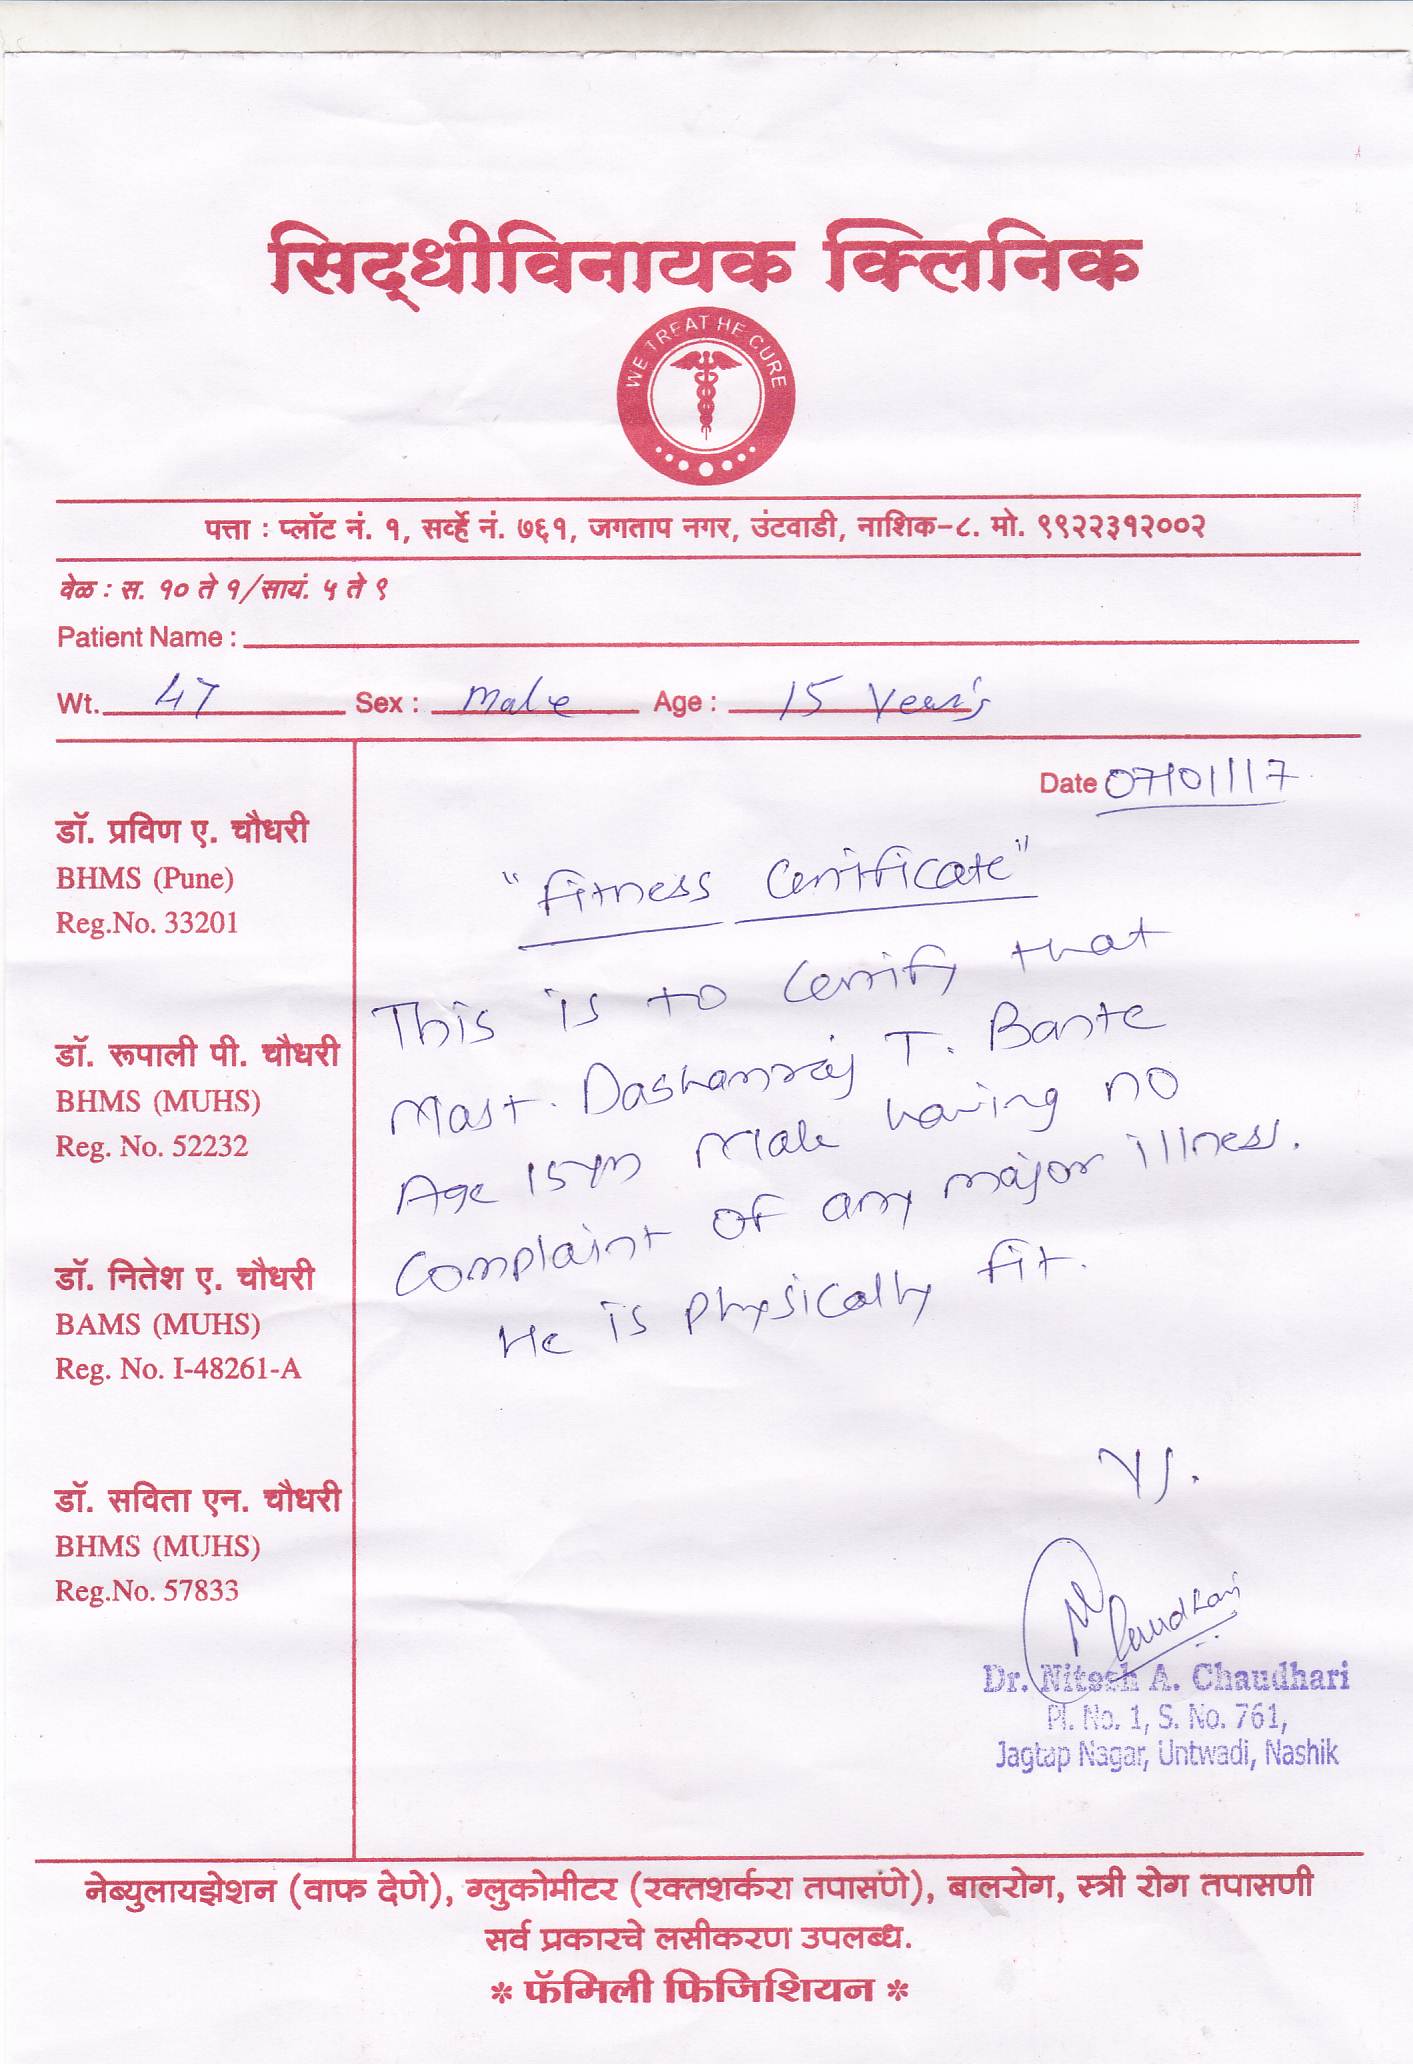 सिद्धीविनायक क्लिनिक
WE TREAT HE CURE
पत्ता : प्लॉट नं. १, सर्व्हे नं. ७६१, जगताप नगर, उंटवाडी, नाशिक-८. मो. ९९२२३१२००२
वेळ : स. १० ते १/सायं. ५ ते ९
Patient Name :
Wt. 47 Sex : Male Age : 15 Year's
Date 07/01/17
डॉ. प्रविण ए. चौधरी
BHMS (Pune)
Reg.No. 33201
डॉ. रूपाली पी. चौधरी
BHMS (MUHS)
Reg. No. 52232
डॉ. नितेश ए. चौधरी
BAMS (MUHS)
Reg. No. I-48261-A
डॉ. सविता एन. चौधरी
BHMS (MUHS)
Reg.No. 57833
"Fitness Certificate"
This is to Certify that
Mast. Dashanraj T. Bante
Age 15 yrs Male having no
Complaint of any major illness.
He is physically fit.
Dr. Nitesh A. Chaudhari
Pl. No. 1, S. No. 761,
Jagtap Nagar, Untwadi, Nashik
नेब्युलायझेशन (वाफ देणे), ग्लुकोमीटर (रक्तशर्करा तपासणे), बालरोग, स्त्री रोग तपासणी
सर्व प्रकारचे लसीकरण उपलब्ध.
* फॅमिली फिजिशियन *